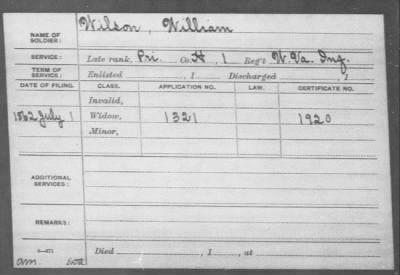 Wilson, William
NAME OF SOLDIER:
SERVICE: Late rank, Pri. Co. H, 1 Reg't W. Va. Inf.
TERM OF SERVICE: Enlisted , 1 Discharged , 1
DATE OF FILING. CLASS. APPLICATION NO. LAW. CERTIFICATE NO.
Invalid,
1862 July 1 Widow, 1321 1920
Minor,
ADDITIONAL SERVICES:
REMARKS:
Died , 1 , at
am.